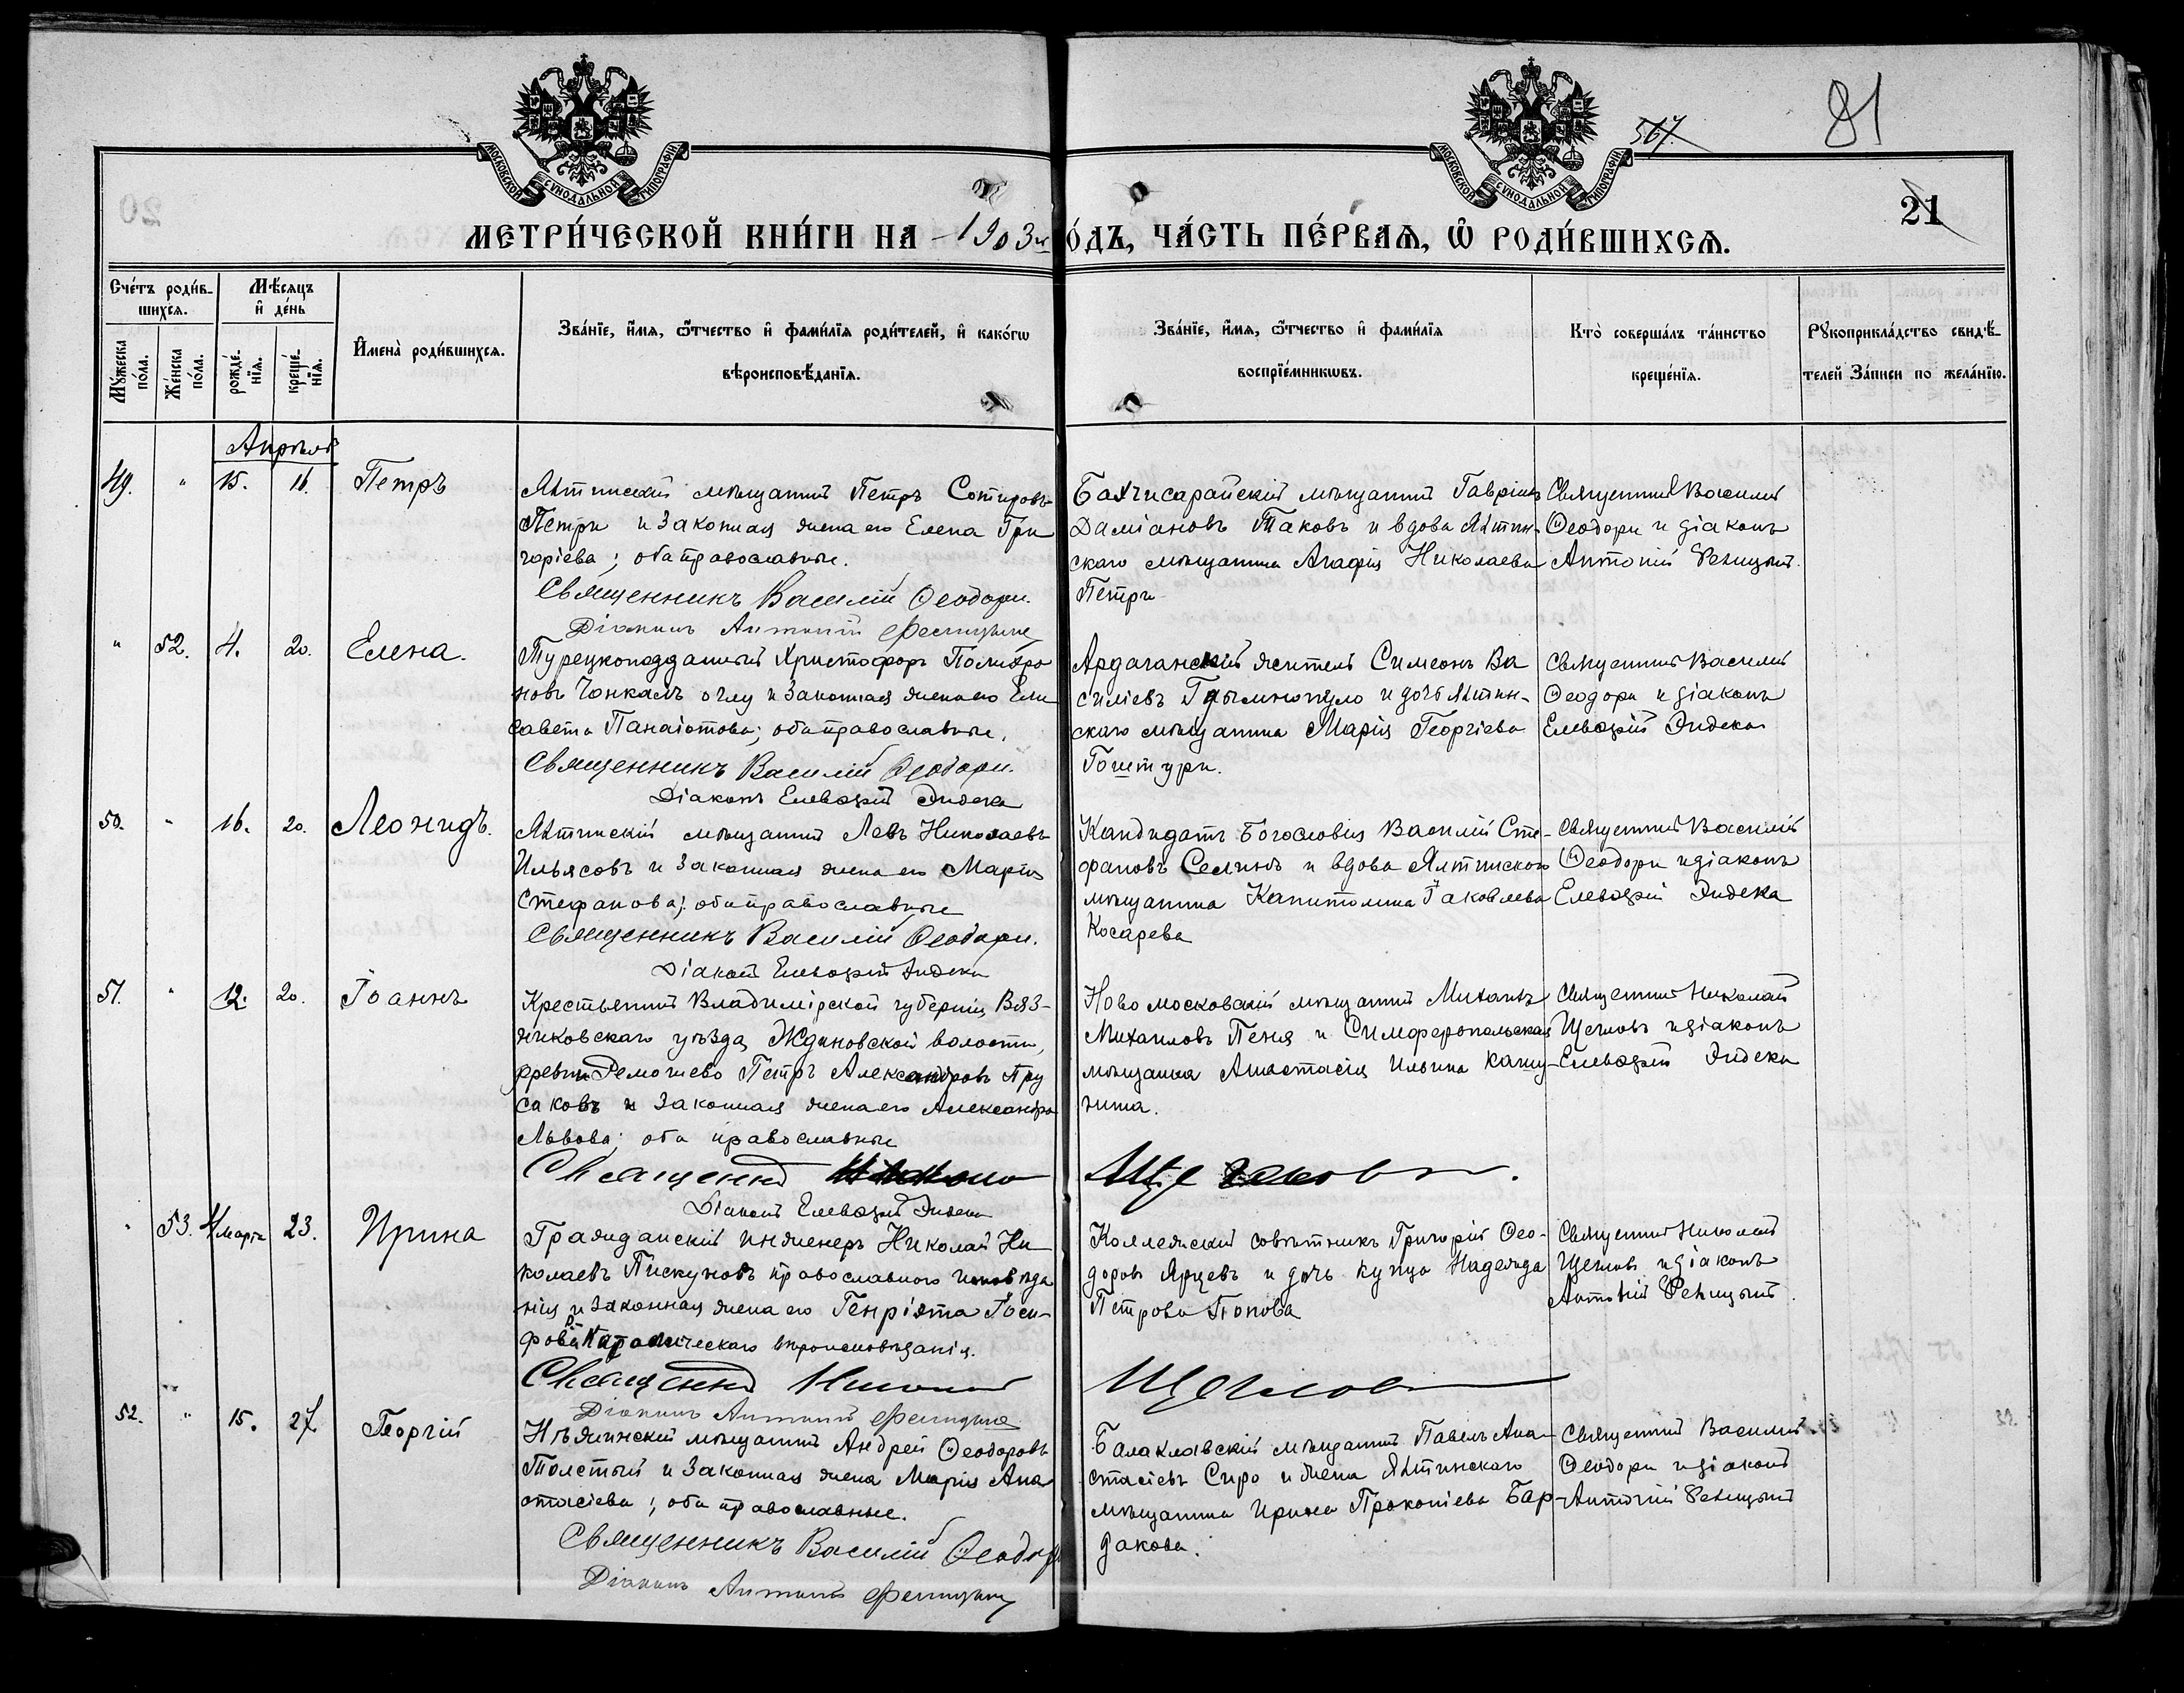 МОСКОВСКОЙ СѴНОДАЛЬНОЙ ТИПОГРАФІИ
МОСКОВСКОЙ СѴНОДАЛЬНОЙ ТИПОГРАФІИ
567.
81
21
МЕТРИ́ЧЕСКОЙ КНИ́ГИ НА 1903й
О́ДЪ, ЧА́СТЬ ПЕ́РВАѦ, Ѡ҃ РОДИ́ВШИХСѦ.
Сче́тъ роди́в-
шихсѧ.
Мѣ́сѧцъ
и҆ де́нь
Мꙋ́жеска
по́ла.
Же́нска
по́ла.
рожде́-
нїѧ.
креще́-
нїѧ.
И҆мена̀ роди́вшихсѧ.
Зва́нїе, и҆́мѧ, ѻ҆́тчество и҆ фами́лїѧ роди́телей, и҆ како́гѡ
вѣроисповѣ́данїѧ.
Зва́нїе, и҆́мѧ, ѻ҆́тчество и҆ фами́лїѧ
воспрїе́мникѡвъ.
Кто̀ соверша́лъ та́инство
креще́нїѧ.
Рꙋкоприкла́дство свидѣ́-
телей За́писи по жела́нїю.
Апрѣль
49. " 15. 16. Петръ
Ялтинскій мѣщанинъ Петръ Сотировъ
Петри и законная жена его Елена Гри
горіева; оба православные.
Священникъ Василій Ѳеодори.
Діаконъ Антоній
Бахчисарайскій мѣщанинъ Гавріилъ
Даміановъ Таковъ и вдова Ялтин-
скаго мѣщанина Агафія Николаева
Петри
Священникъ Василій
Ѳеодори и діаконъ
Антоній
" 52. 4. 20. Елена.
Турецкоподданный Христофоръ Полихро
новъ Чонкалъ оглу и законная жена его Ели
савета Панаіотова; оба православные.
Священникъ Василій Ѳеодори.
Діаконъ Елевѳерій Эндека
Ардаганскій житель Симеонъ Ва
силіевъ и дочь Ялтин-
скаго мѣщанина Марія Георгіева
Гоштури.
Священникъ Василій
Ѳеодори и діаконъ
Елевѳерій Эндека
50. " 16. 20. Леонидъ.
Ялтинскій мѣщанинъ Левъ Николаевъ
Ильясовъ и законная жена его Марія
Стефанова; оба православные
Священникъ Василій Ѳеодори.
Діаконъ Елевѳерій Эндека
Кандидатъ Богословія Василій Сте-
фановъ Селинъ и вдова Ялтинскаго
мѣщанина Капитолина Іаковлева
Косарева
Священникъ Василій
Ѳеодори и діаконъ
Елевѳерій Эндека
51. " 12. 20. Іоаннъ
Крестьянинъ Владимірской губерніи, Вяз-
никовскаго уѣзда, Ждановской волости,
Петръ Александровъ Пру
саковъ и законная жена его Александра
Львова; оба православные
Священникъ
Діаконъ Елевѳерій Эндека
Ново московскій мѣщанинъ Михаилъ
Михаиловъ Пеня и Симферопольская
мѣщанка Анастасія Ильина
Щегловъ.
Священникъ Николай
Щегловъ и діаконъ
Елевѳерій Эндека
" 53. 4 марта 23. Ирина
Гражданскій инженеръ Николай Ни
колаевъ Пискуновъ православного исповѣда
нія и законная жена его Генріэта Іоси-
фова Католическаго вѣроисповѣданія.
Священникъ Николай
Діаконъ Антоній
Коллежскій совѣтникъ Григорій Ѳео-
доровъ Ярцевъ и дочь купца Надежда
Петрова Попова
Щегловъ
Священникъ Николай
Щегловъ и діаконъ
Антоній
52. " 15. 27. Георгій
Нѣжинскій мѣщанинъ Андрей Ѳеодоровъ
Толстый и законная жена Марія Ана
стасіева; оба православные.
Священникъ Василій Ѳеодори
Діаконъ Антоній
Балаклавскій мѣщанинъ Павелъ Ана-
стасіевъ Сиро и жена Ялтинскаго
мѣщанина Ирина Прокопіева Бар-
дакова.
Священникъ Василій
Ѳеодори и діаконъ
Антоній